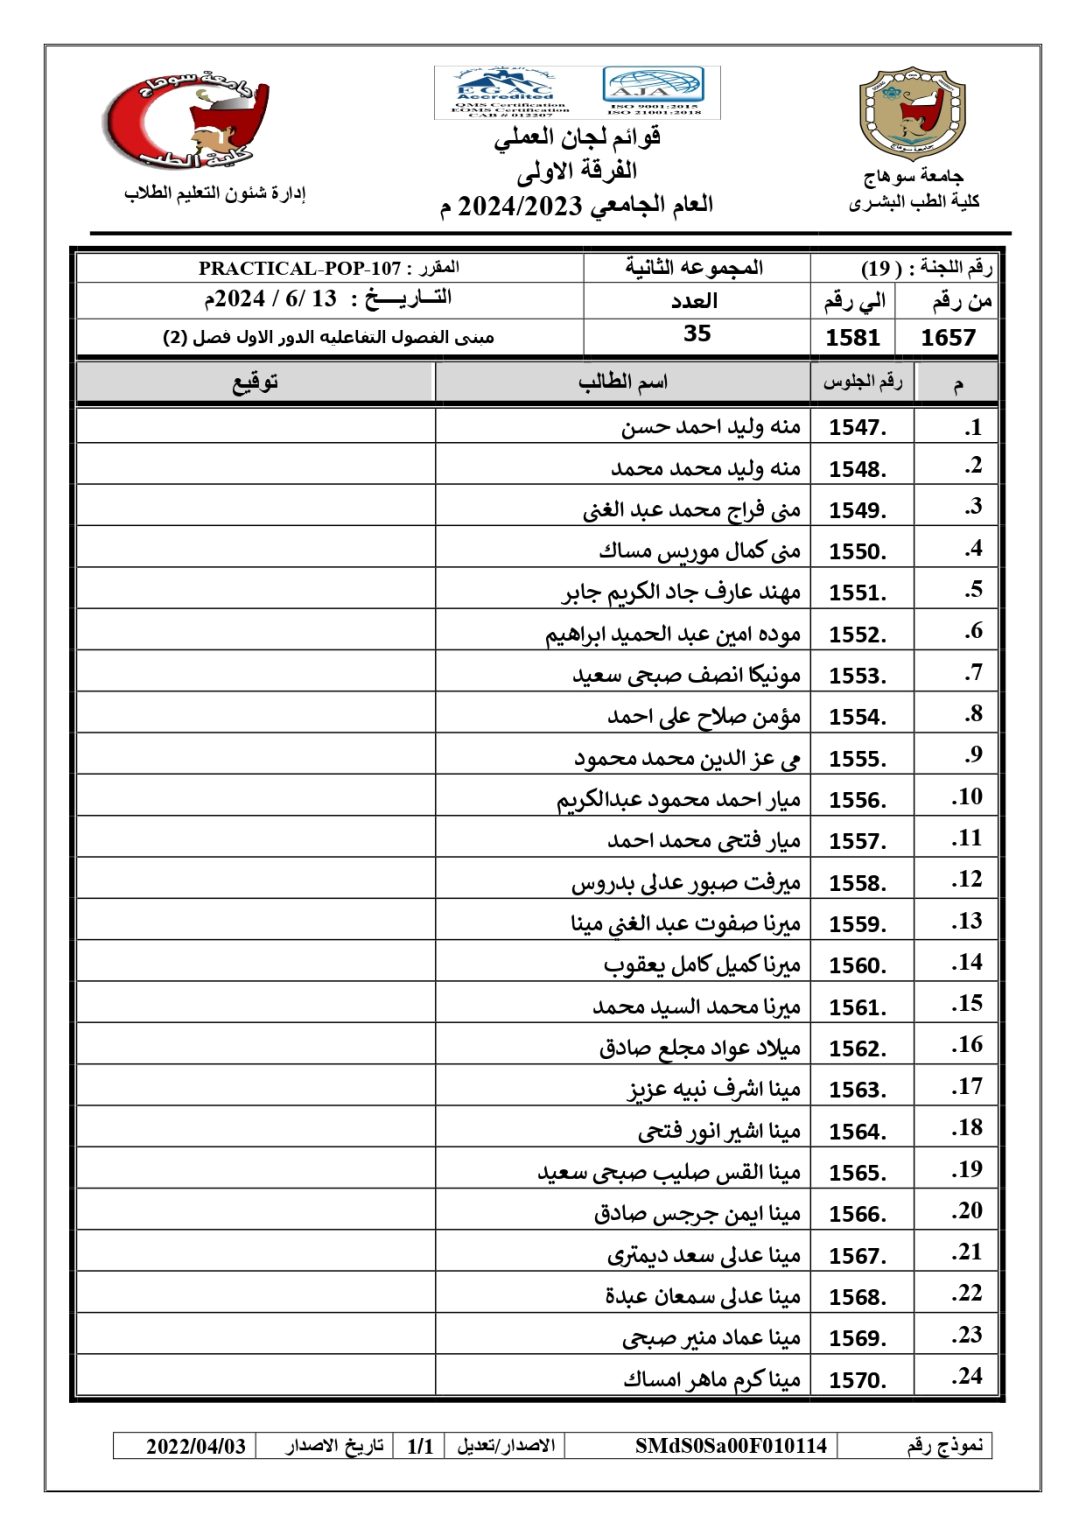 جامعة سوهاج
كلية الطب البشرى
EGAC
Accredited
QMS Certification
EOMS Certification
CAB # 012207
AJA
ISO 9001:2015
ISO 21001:2018
قوائم لجان العملي
الفرقة الاولى
العام الجامعي 2024/2023 م
جامعة سوهاج
كلية الطب
إدارة شئون التعليم الطلاب
رقم اللجنة : ( 19) المجموعه الثانية المقرر : PRACTICAL-POP-107
من رقم الي رقم العدد التــاريـــخ : 13 /6 / 2024م
1657 1581 35 مبنى الفصول التفاعليه الدور الاول فصل (2)
م رقم الجلوس اسم الطالب توقيع
1. 1547. منه وليد احمد حسن
2. 1548. منه وليد محمد محمد
3. 1549. منى فراج محمد عبد الغنى
4. 1550. منى كمال موريس مساك
5. 1551. مهند عارف جاد الكريم جابر
6. 1552. موده امين عبد الحميد ابراهيم
7. 1553. مونيكا انصف صبحى سعيد
8. 1554. مؤمن صلاح على احمد
9. 1555. مى عز الدين محمد محمود
10. 1556. ميار احمد محمود عبدالكريم
11. 1557. ميار فتحى محمد احمد
12. 1558. ميرفت صبور عدلى بدروس
13. 1559. ميرنا صفوت عبد الغني مينا
14. 1560. ميرنا كميل كامل يعقوب
15. 1561. ميرنا محمد السيد محمد
16. 1562. ميلاد عواد مجلع صادق
17. 1563. مينا اشرف نبيه عزيز
18. 1564. مينا اشير انور فتحى
19. 1565. مينا القس صليب صبحى سعيد
20. 1566. مينا ايمن جرجس صادق
21. 1567. مينا عدلى سعد ديمترى
22. 1568. مينا عدلى سمعان عبدة
23. 1569. مينا عماد منير صبحى
24. 1570. مينا كرم ماهر امساك
نموذج رقم SMdS0Sa00F010114 الاصدار/تعديل 1/1 تاريخ الاصدار 2022/04/03